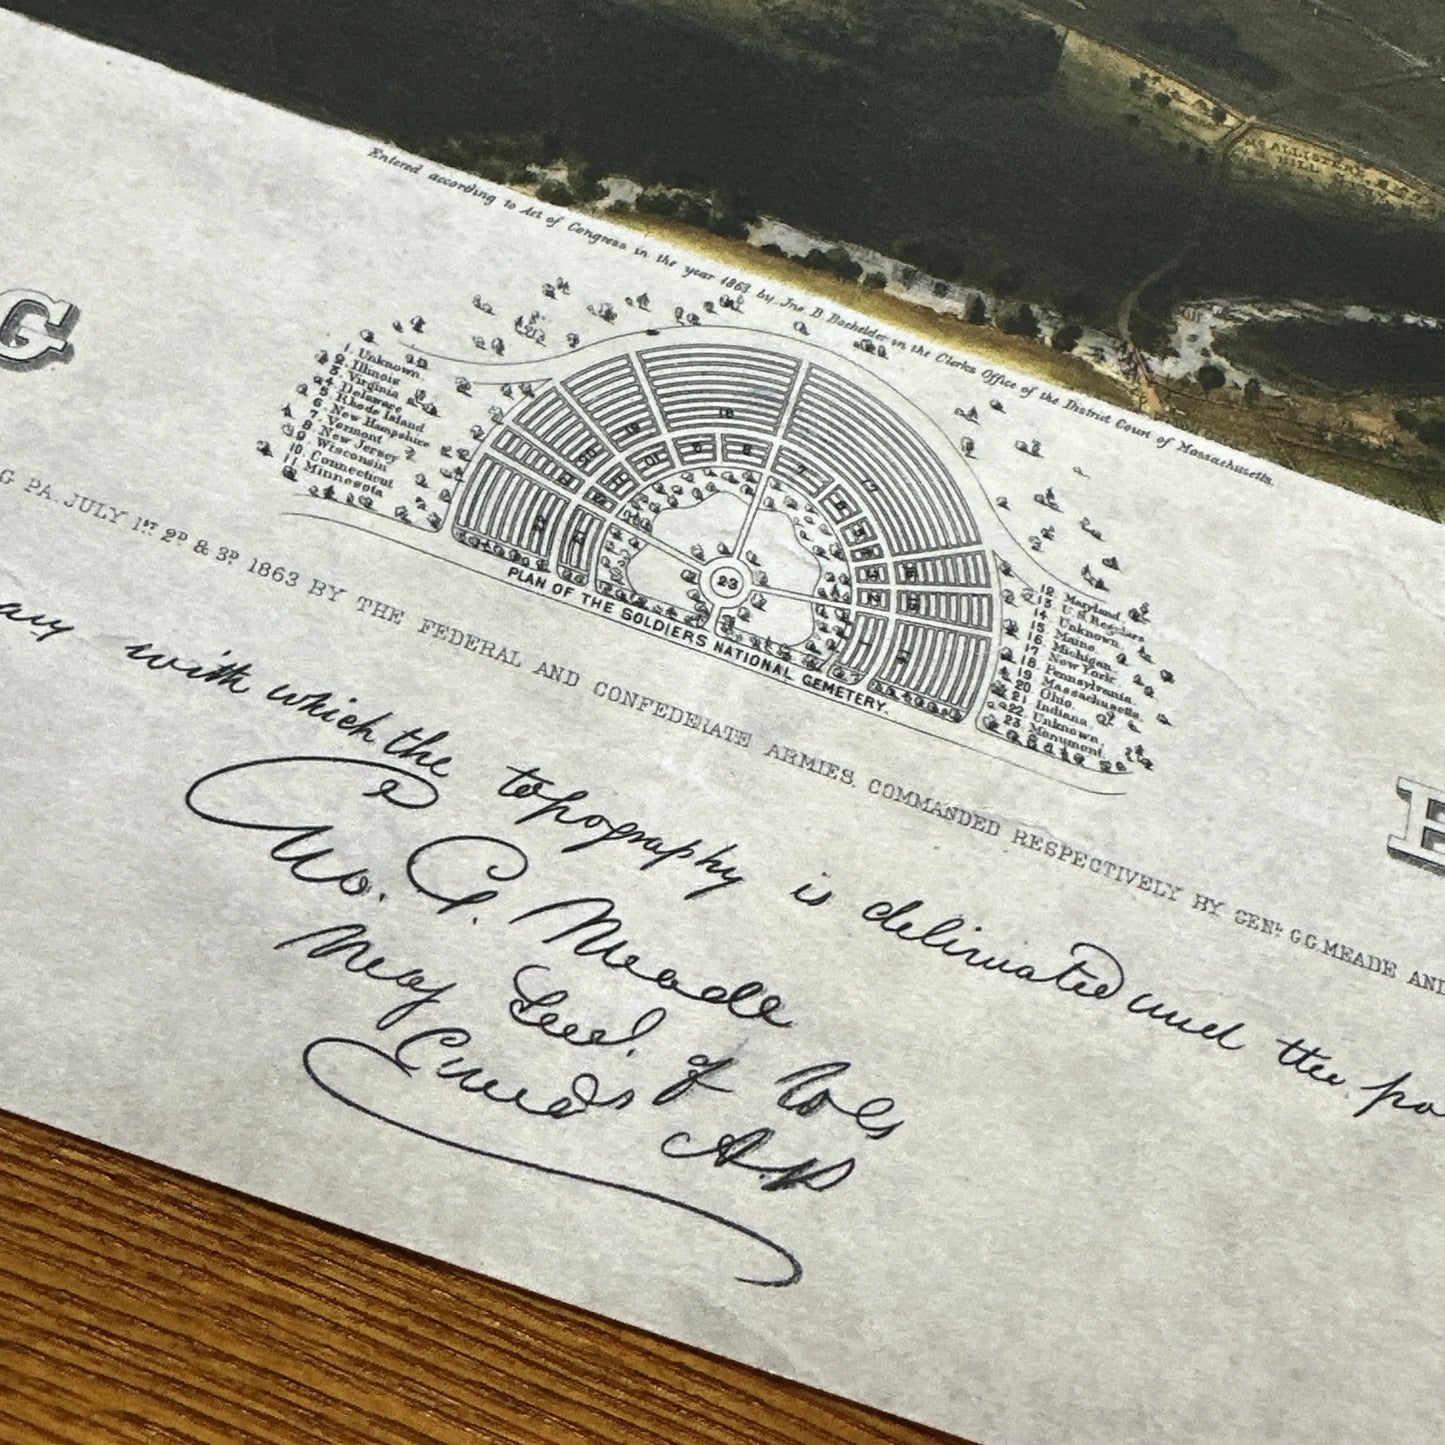 Mc ALLISTER'S
HILL
Entered according to Act of Congress in the year 1863 by Jno. B. Bachelder in the Clerks Office of the District Court of Massachusetts.
G
1. Unknown
2. Illinois
3. Virginia
4. Delaware
5. Rhode Island
6. New Hampshire
7. Vermont
8. New Jersey
9. Wisconsin
10. Connecticut
11. Minnesota
23
12. Maryland
13. U.S. Regulars
14. Unknown
15. Maine
16. Michigan
17. New York
18. Pennsylvania
19. Massachusetts
20. Ohio
21. Indiana
22. Unknown
23. Monument
PLAN OF THE SOLDIERS NATIONAL CEMETERY.
G PA. JULY 1ST 2D & 3D, 1863 BY THE FEDERAL AND CONFEDERATE ARMIES, COMMANDED RESPECTIVELY BY GENL G.G. MEADE AND
with which the topography is deliniated and the po
Geo. G. Meade
Maj Genl. of Vols
Comdg A.P.